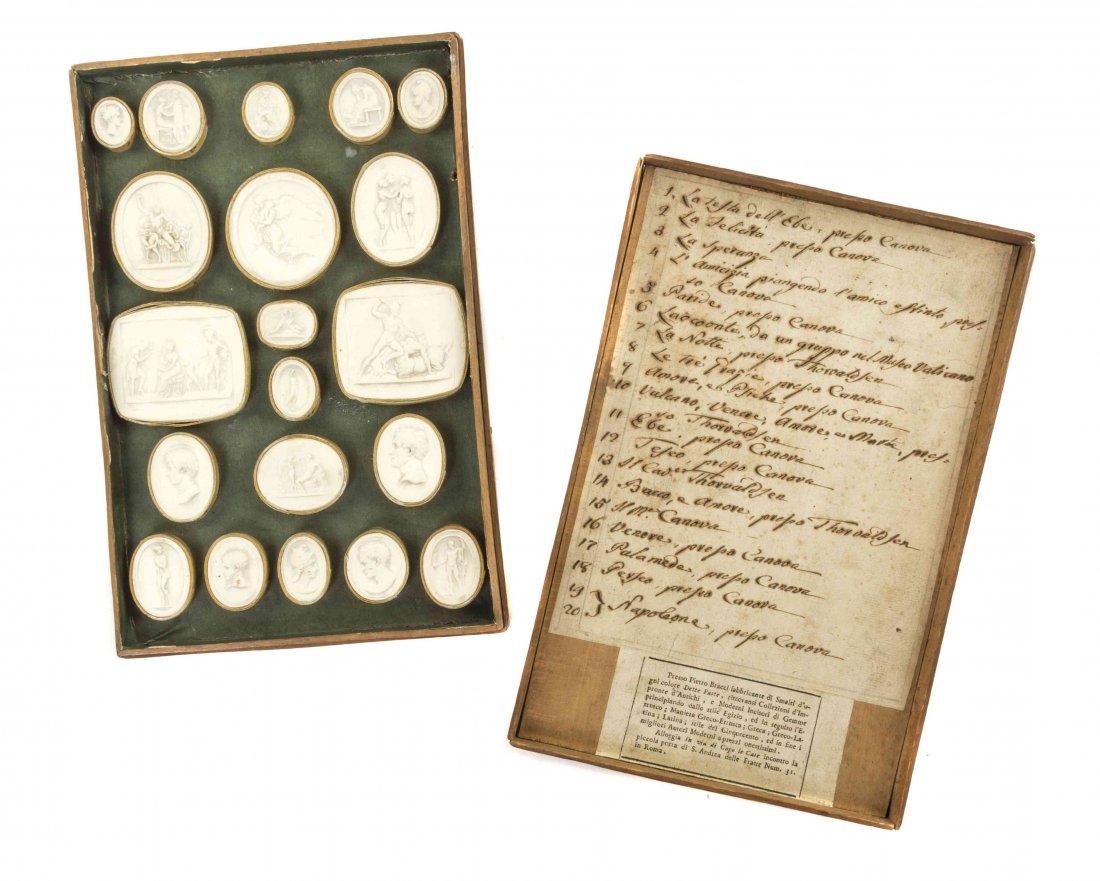 1. La testa dell'Ebe, presso Canova
2 La Felicità, presso Canova
3 La Speranza
4 L'Amicizia piangendo l'amico estinto, pres-
so Canova
5 Paride, presso Canova
6 Lacoonte, da un gruppo nel Museo Vaticano
7 La Notte, presso Thorvaldsen
8 Le Tre Grazie, presso Canova
9 Amore, e Psiche, presso Canova
10 Vulcano, Venere, Amore, e Marte, pres-
so Thorvaldsen
11 Ebe, presso Canova
12 Teseo, presso Canova
13 Il Cav. Thorvaldsen
14 Bacco, e Amore, presso Thorvaldsen
15 Il Mse Canova
16 Venere, presso Canova
17 Palamede, presso Canova
18 Perseo presso Canova
19
20 } Napoleone, presso Canova
Presso Pietro Bracci fabbricante di Smalti d'o-
gni colore Dette Paste, ritrovansi Collezioni d'Im-
pronte d'Antichi, e Moderni Incisori di Gemme
principiando dallo stile Egizio, ed in seguito l'E-
trusco; Maniera Greco-Etrusca; Greca; Greco-La-
tina; Latina; stile del Cinquecento, ed in fine i
migliori Autori Moderni a prezzi onestissimi.
Alloggia in via di Capo le Case incontro la
piccola porta di S. Andrea delle Fratte Num. 31.
in Roma.